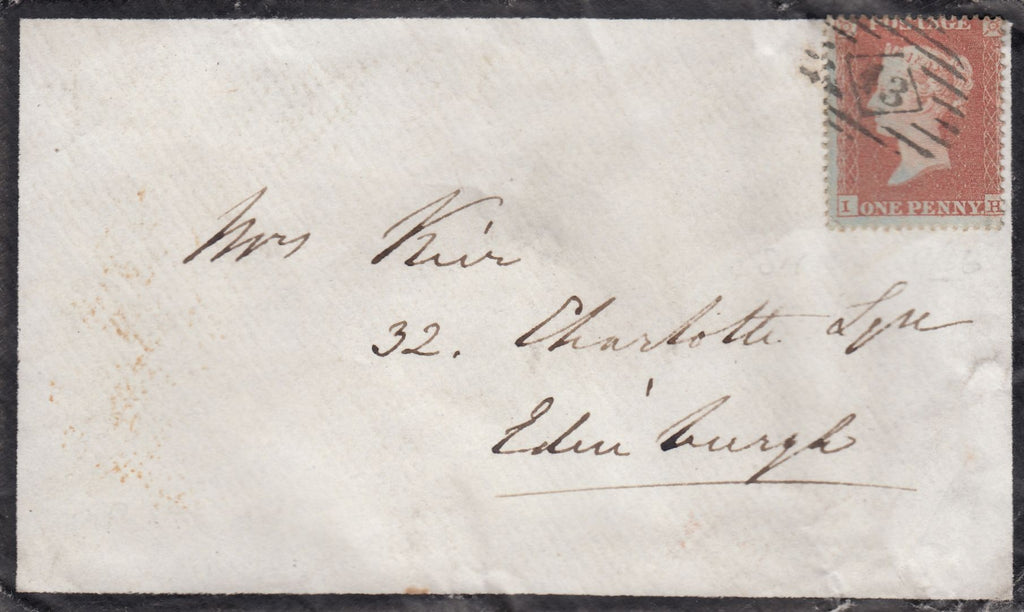 POSTAGE
3
I ONE PENNY. H
Mrs Keir
32. Charlotte Sqre
Edinburgh